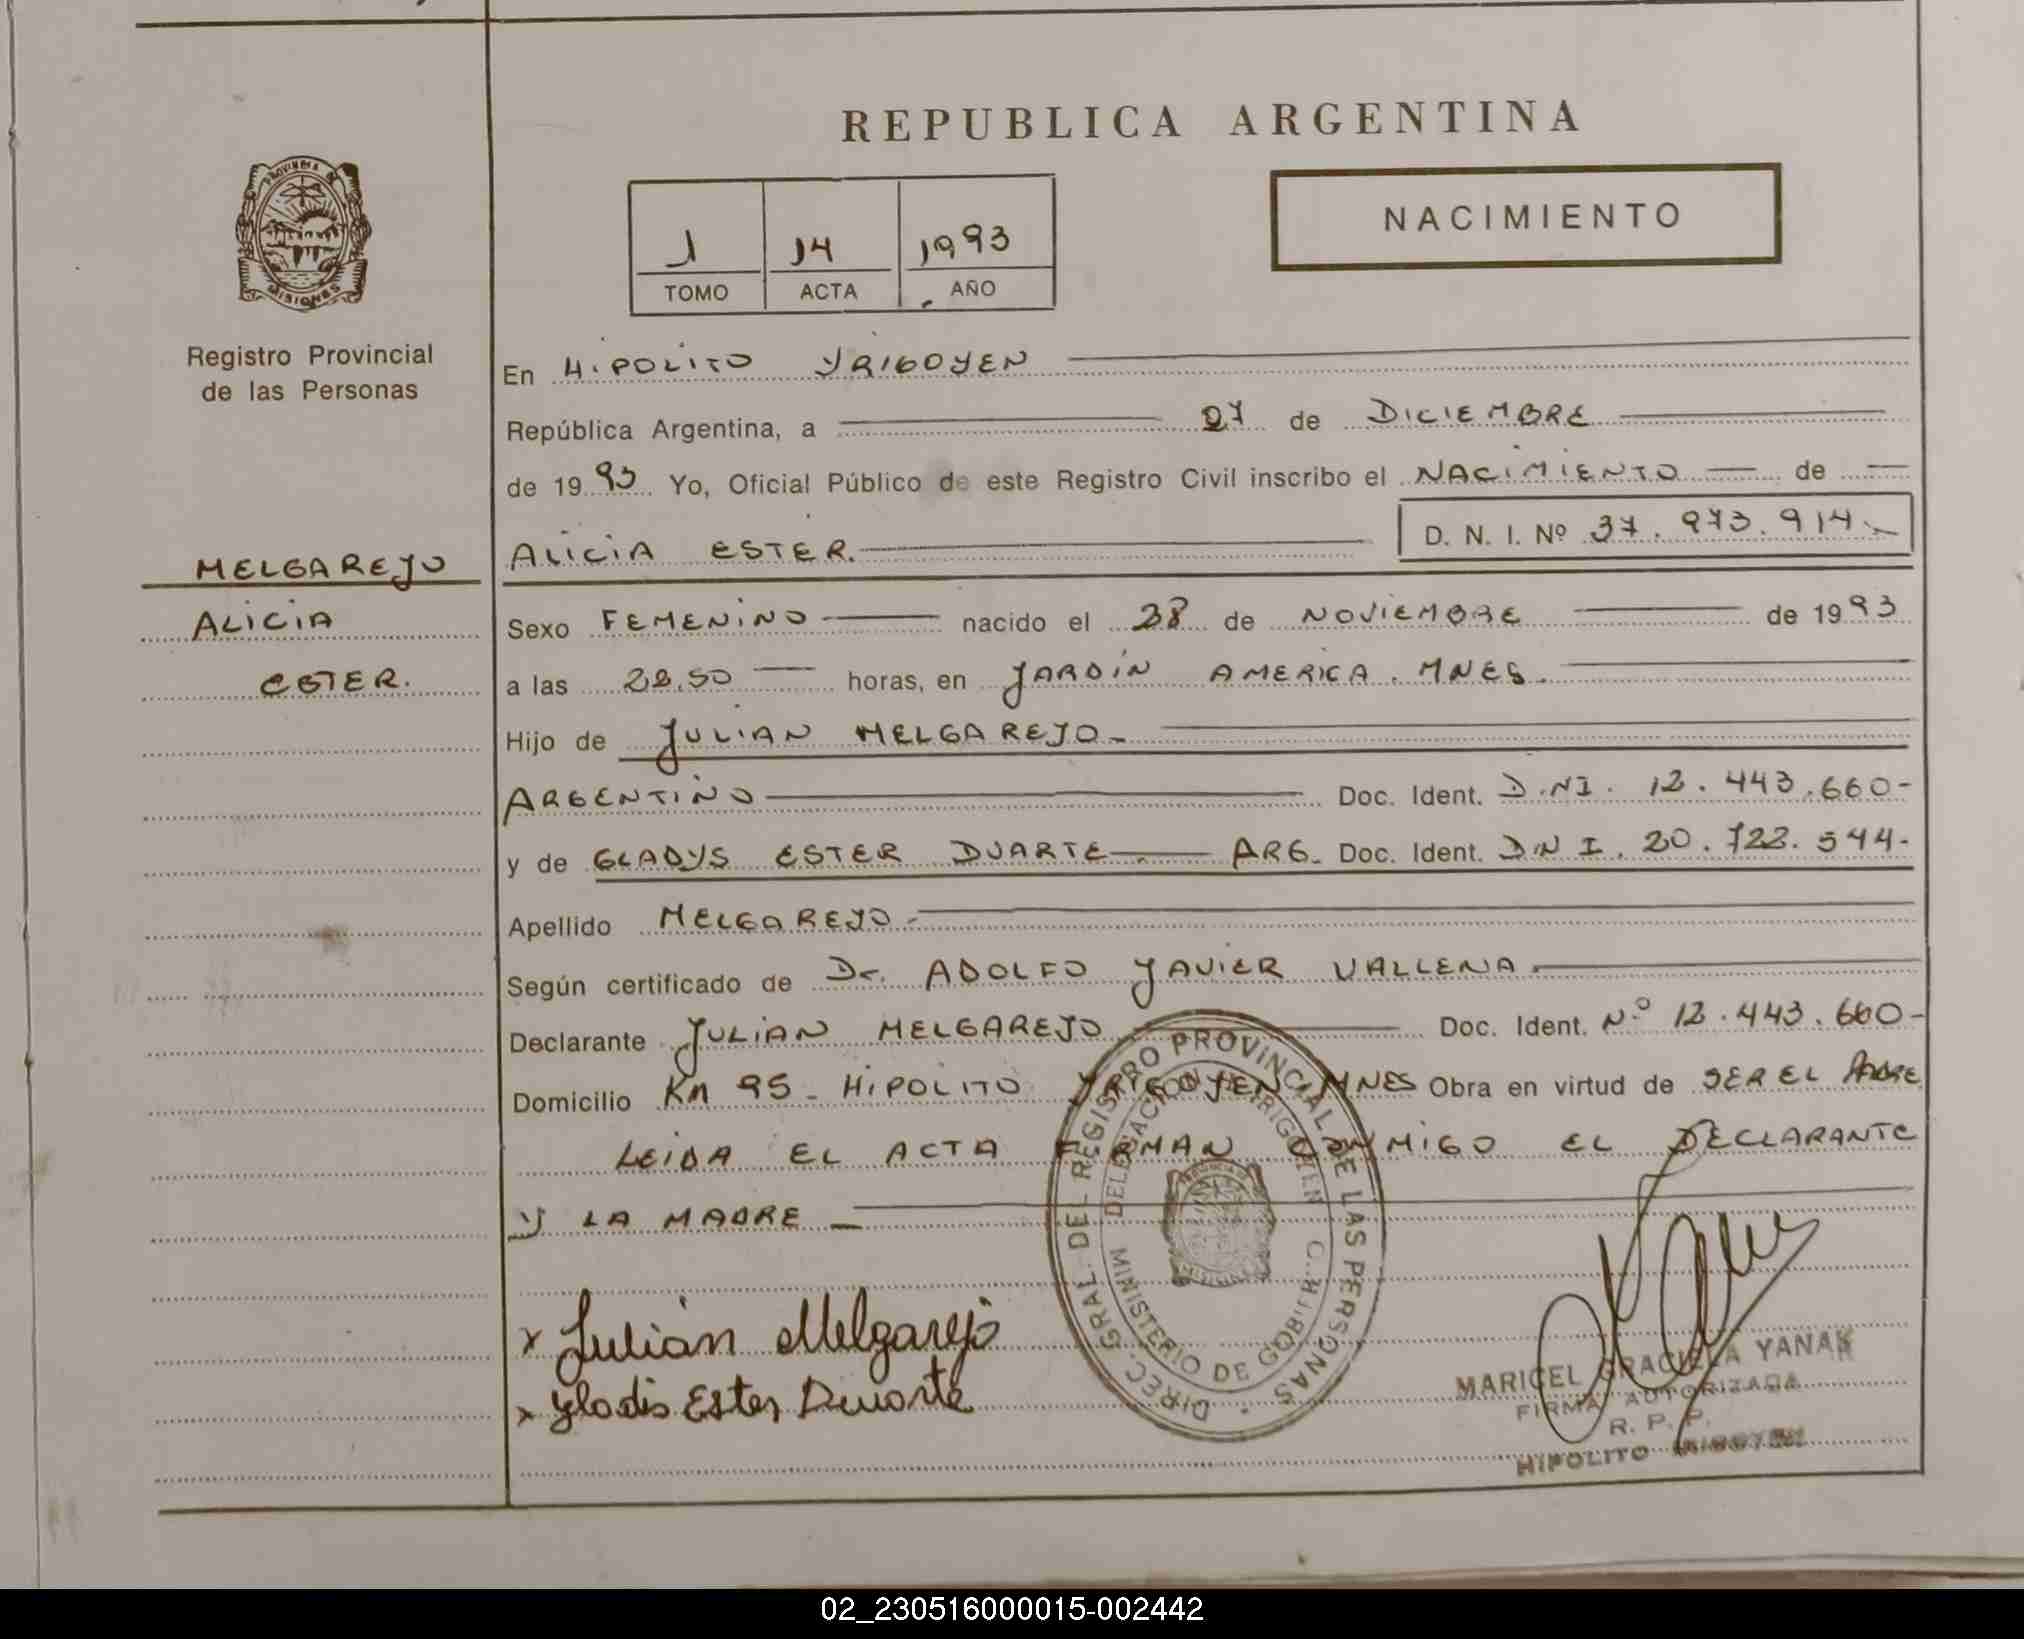 REPUBLICA ARGENTINA
PROVINCIA DE
MISIONES
Registro Provincial
de las Personas
1 14 1993
TOMO ACTA AÑO
NACIMIENTO
En HIPOLITO YRIGOYEN
República Argentina, a 27 de DICIEMBRE
de 1993 Yo, Oficial Público de este Registro Civil inscribo el NACIMIENTO de
ALICIA ESTER. D. N. I. Nº 37.973.914.-
MELGAREJO
ALICIA
ESTER.
Sexo FEMENINO nacido el 28 de NOVIEMBRE de 1993
a las 22,50 horas, en JARDIN AMERICA. MNES.
Hijo de JULIAN MELGAREJO-
ARGENTINO Doc. Ident. D.NI. 12.443.660-
y de GLADYS ESTER DUARTE ARG. Doc. Ident. D.N I. 20.722.544-
Apellido MELGAREJO.-
Según certificado de Dr. ADOLFO JAVIER VALLENA
Declarante JULIAN MELGAREJO Doc. Ident. Nº 12.443.660-
Domicilio Km 95 - HIPOLITO YRIGOYEN MNES Obra en virtud de SER EL PADRE
LEIDA EL ACTA FIRMAN CONMIGO EL DECLARANTE
Y LA MADRE
x Julián Melgarejo
x Gladis Ester Duarte
DIREC. GRAL. DEL REGISTRO PROVINCIAL DE LAS PERSONAS
MINISTERIO DE GOBIERNO
MARICEL GRACIELA YANAK
FIRMA AUTORIZADA
R. P. P.
HIPOLITO IRIGOYEN
02_230516000015-002442